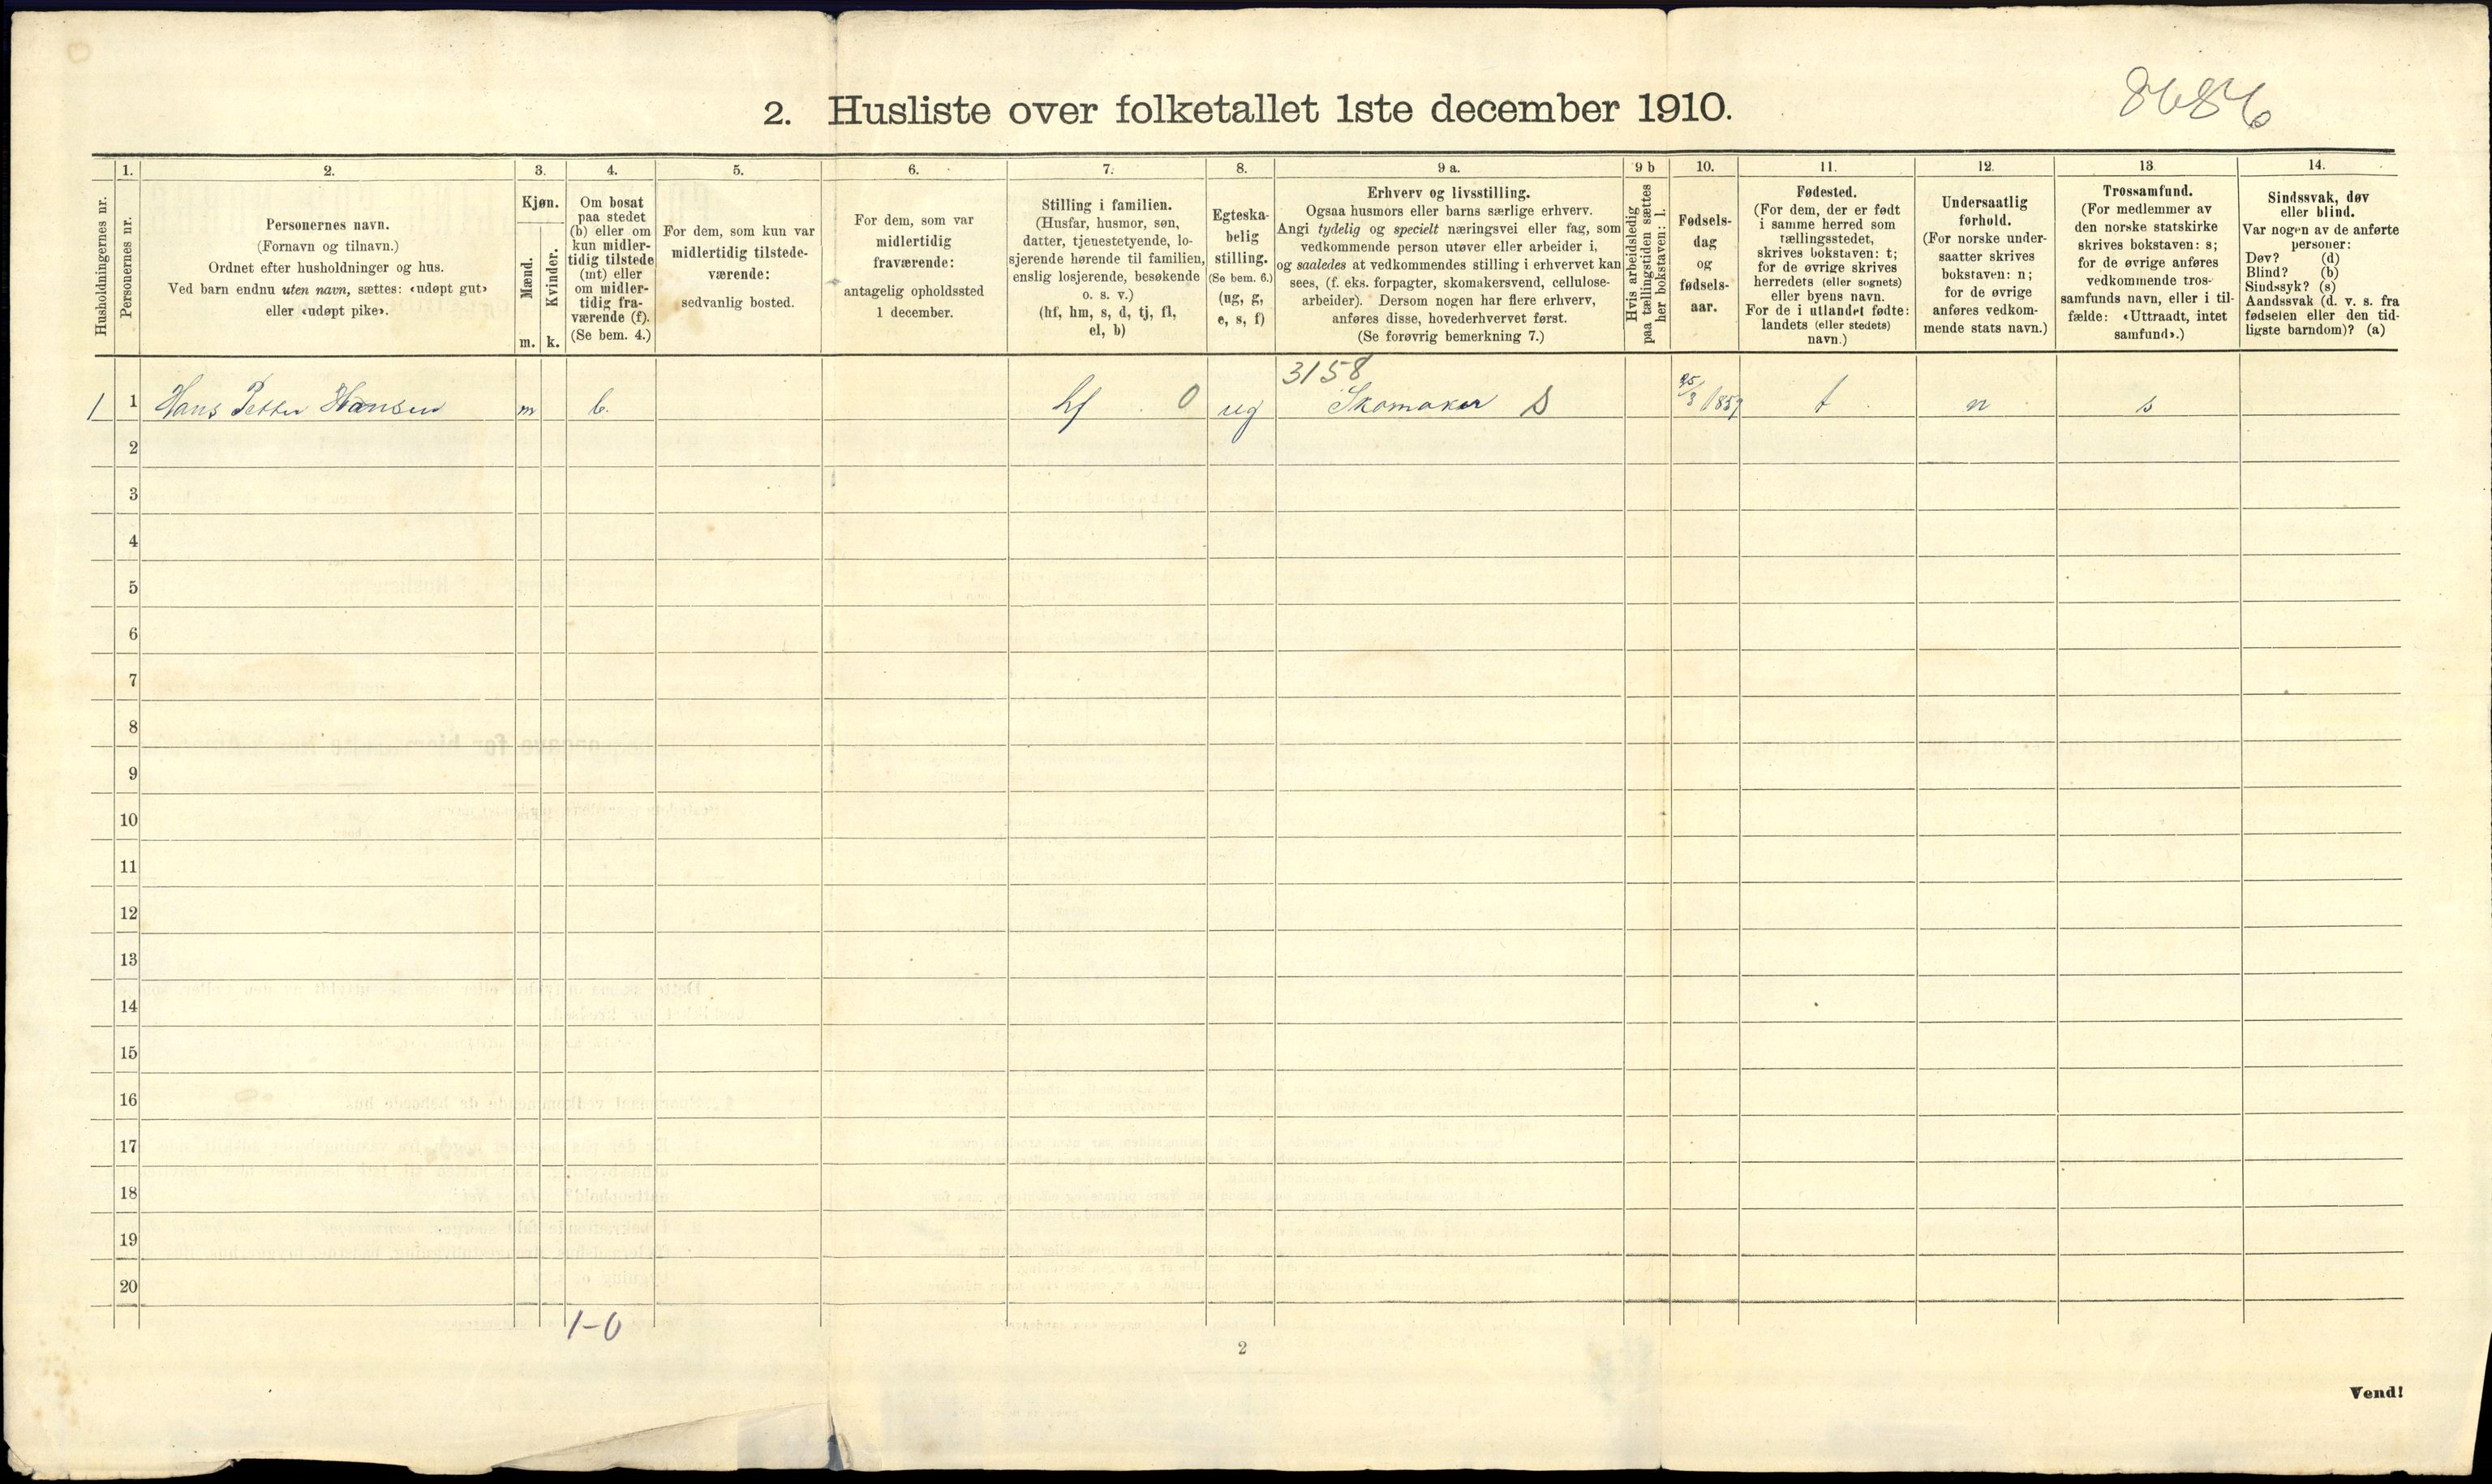 8686
2. Husliste over folketallet 1ste december 1910.
Husholdningernes nr.
1.
Personernes nr.
2.
Personernes navn.
(Fornavn og tilnavn.)
Ordnet efter husholdninger og hus.
Ved barn endnu uten navn, sættes: «udøpt gut»
eller «udøpt pike».
3.
Kjøn.
Mænd.
m.
Kvinder.
k.
4.
Om bosat
paa stedet
(b) eller om
kun midler-
tidig tilstede
(mt) eller
om midler-
tidig fra-
værende (f).
(Se bem. 4.)
5.
For dem, som kun var
midlertidig tilstede-
værende:
sedvanlig bosted.
6.
For dem, som var
midlertidig
fraværende:
antagelig opholdssted
1 december.
7.
Stilling i familien.
(Husfar, husmor, søn,
datter, tjenestetyende, lo-
sjerende hørende til familien,
enslig losjerende, besøkende
o. s. v.)
(hf, hm, s, d, tj, fl,
el, b)
8.
Egteska-
belig
stilling.
(Se bem. 6.)
(ug, g,
e, s, f)
9 a.
Erhverv og livsstilling.
Ogsaa husmors eller barns særlige erhverv.
Angi tydelig og specielt næringsvei eller fag, som
vedkommende person utøver eller arbeider i,
og saaledes at vedkommendes stilling i erhvervet kan
sees, (f. eks. forpagter, skomakersvend, cellulose-
arbeider). Dersom nogen har flere erhverv,
anføres disse, hovederhvervet først.
(Se forøvrig bemerkning 7.)
9 b
Hvis arbeidsledig
paa tællingstiden sættes
her bokstaven: l.
10.
Fødsels-
dag
og
fødsels-
aar.
11.
Fødested.
(For dem, der er født
i samme herred som
tællingsstedet,
skrives bokstaven: t;
for de øvrige skrives
herredets (eller sognets)
eller byens navn.
For de i utlandet fødte:
landets (eller stedets)
navn.)
12.
Undersaatlig
forhold.
(For norske under-
saatter skrives
bokstaven: n;
for de øvrige
anføres vedkom-
mende stats navn.)
13.
Trossamfund.
(For medlemmer av
den norske statskirke
skrives bokstaven: s;
for de øvrige anføres
vedkommende tros-
samfunds navn, eller i til-
fælde: «Uttraadt, intet
samfund».)
14.
Sindssvak, døv
eller blind.
Var nogen av de anførte
personer:
Døv? (d)
Blind? (b)
Sindssyk? (s)
Aandssvak (d. v. s. fra
fødselen eller den tid-
ligste barndom)? (a)
3158
1 1 Hans Petter Hansen m b. hf 0 ug Skomaker S 25/3 1859 t n s
2
3
4
5
6
7
8
9
10
11
12
13
14
15
16
17
18
19
20
1-0
2
Vend!